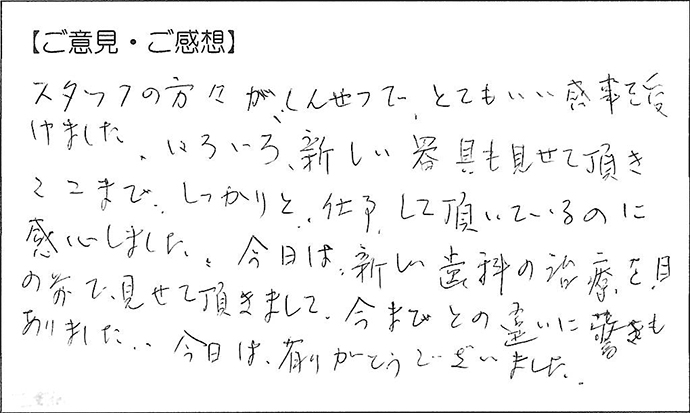 【ご意見・ご感想】
スタッフの方々が、しんせつで、とてもいい感事を受
けました。いろいろ、新しい器具も見せて頂き
ここまで、しっかりと、仕事して頂いているのに
感心しました。今日は、新しい歯科の治療を、目
の前で、見せて頂きまして、今までとの違いに驚きも
ありました。今日は、有りがとうございました。